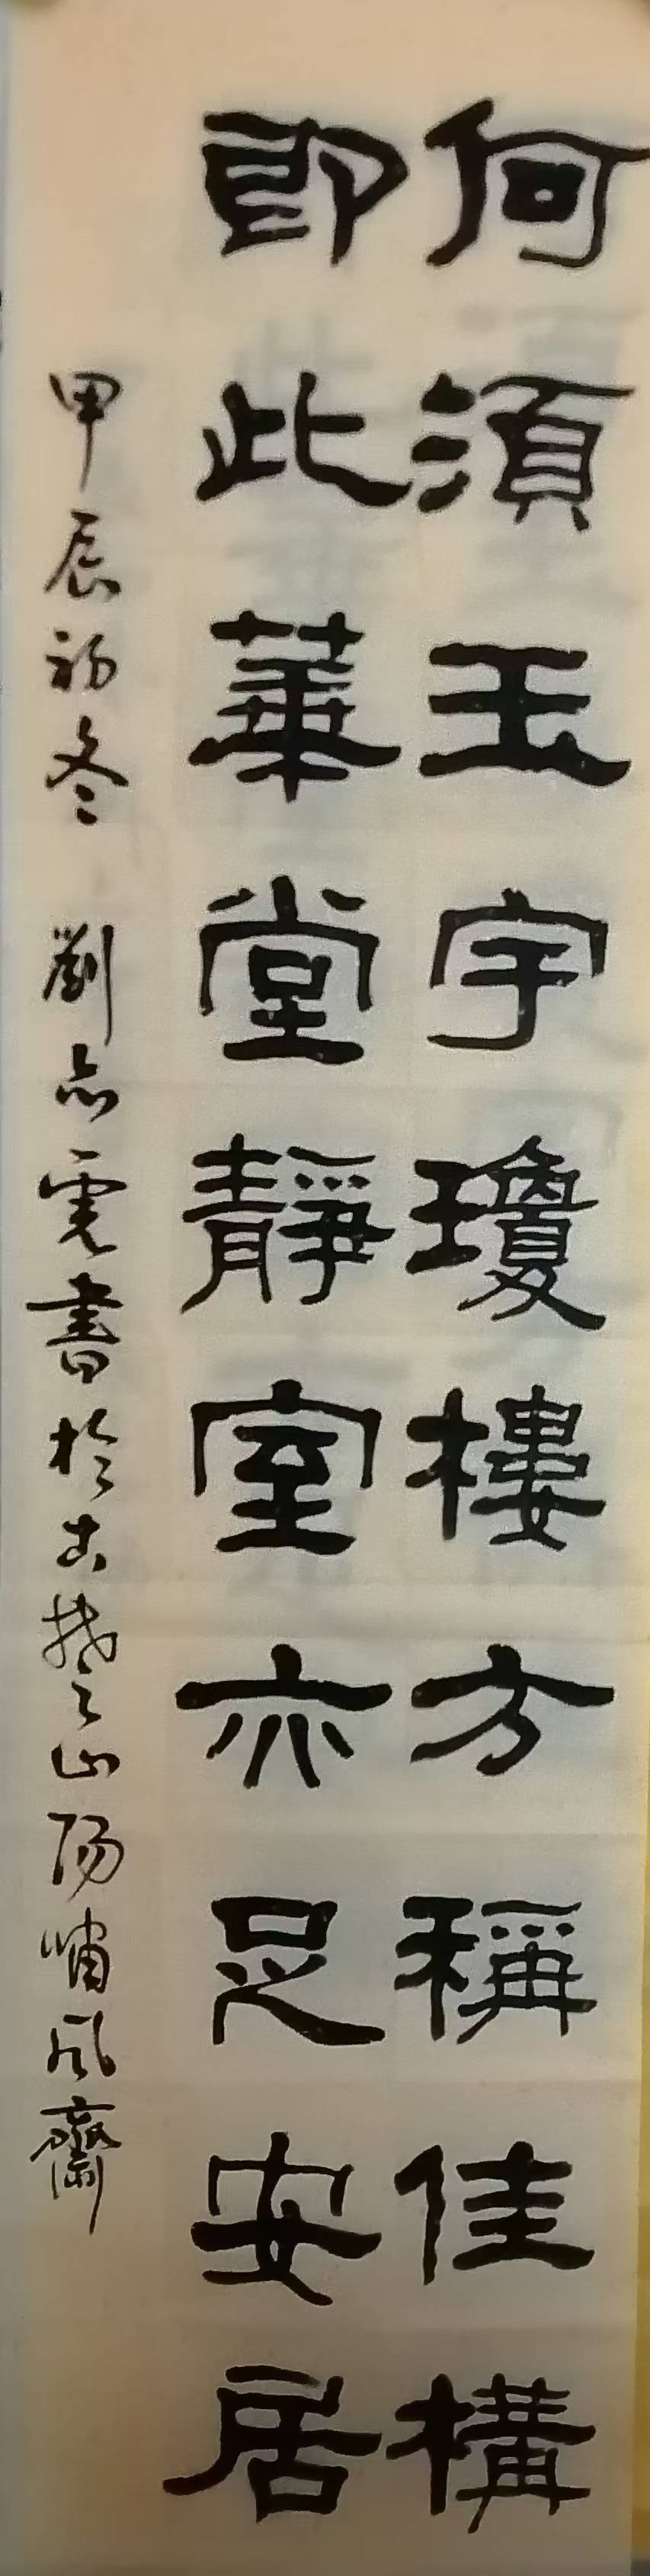 何須玉宇瓊樓方稱佳構
即此華堂靜室亦足安居
甲辰初冬 劉志霓書於古楚山陽嘯風齋